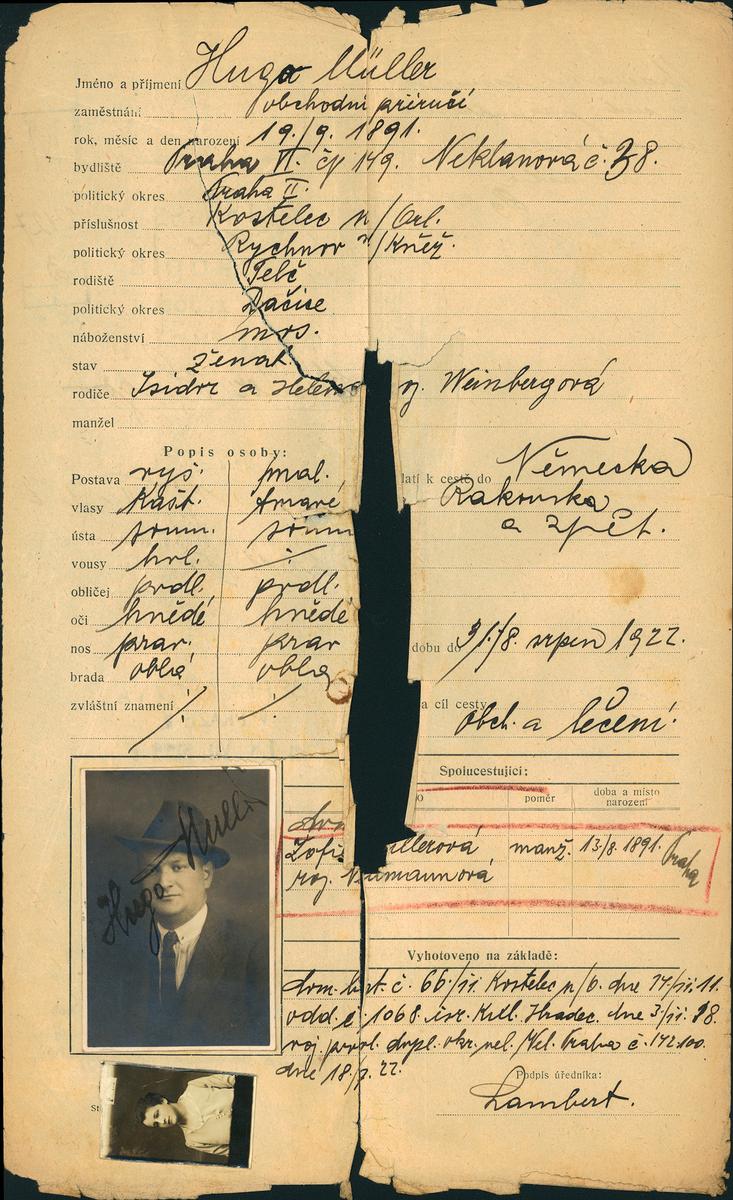 Jméno a příjmení Hugo Müller
zaměstnání obchodní příručí
rok, měsíc a den narození 19./9. 1891.
bydliště Praha VI. čp 149. Neklanová č. 38.
politický okres Praha II.
příslušnost Kostelec n/Orl.
politický okres Rychnov n/Kněž.
rodiště Telč
politický okres Dačice
náboženství mos.
stav ženat.
rodiče Isidor a Helena r. Weinbergová
manžel
Popis osoby:
Postava vyš. mal.
vlasy kašt. tmavé
ústa soum. soum
vousy hol. ÷
obličej prdl. prdl.
oči hnědé hnědé
nos prav. prav
brada oblá oblá
zvláštní znamení ÷ ÷
latí k cestě do Německa
Rakouska
a zpět.
dobu do 31./8. srpen 1922.
a cíl cesty
obch. a léčení.
Spolucestující:
o poměr doba a místo narození
Žofie üllerová manž. 13/8. 1891. Praha
roz. Neumannová
Hugo Müller
Vyhotoveno na základě:
dom. list. č. 66/ii. Kostelec n/O. dne 14/ii. 11.
odd. č 1068 isr. Král. Hradec. dne 3/ii. 18.
voj. povol. dopl. okr. vel. Praha č. 142.100.
dne 18./7. 22.
Podpis úředníka:
Lambert.
St